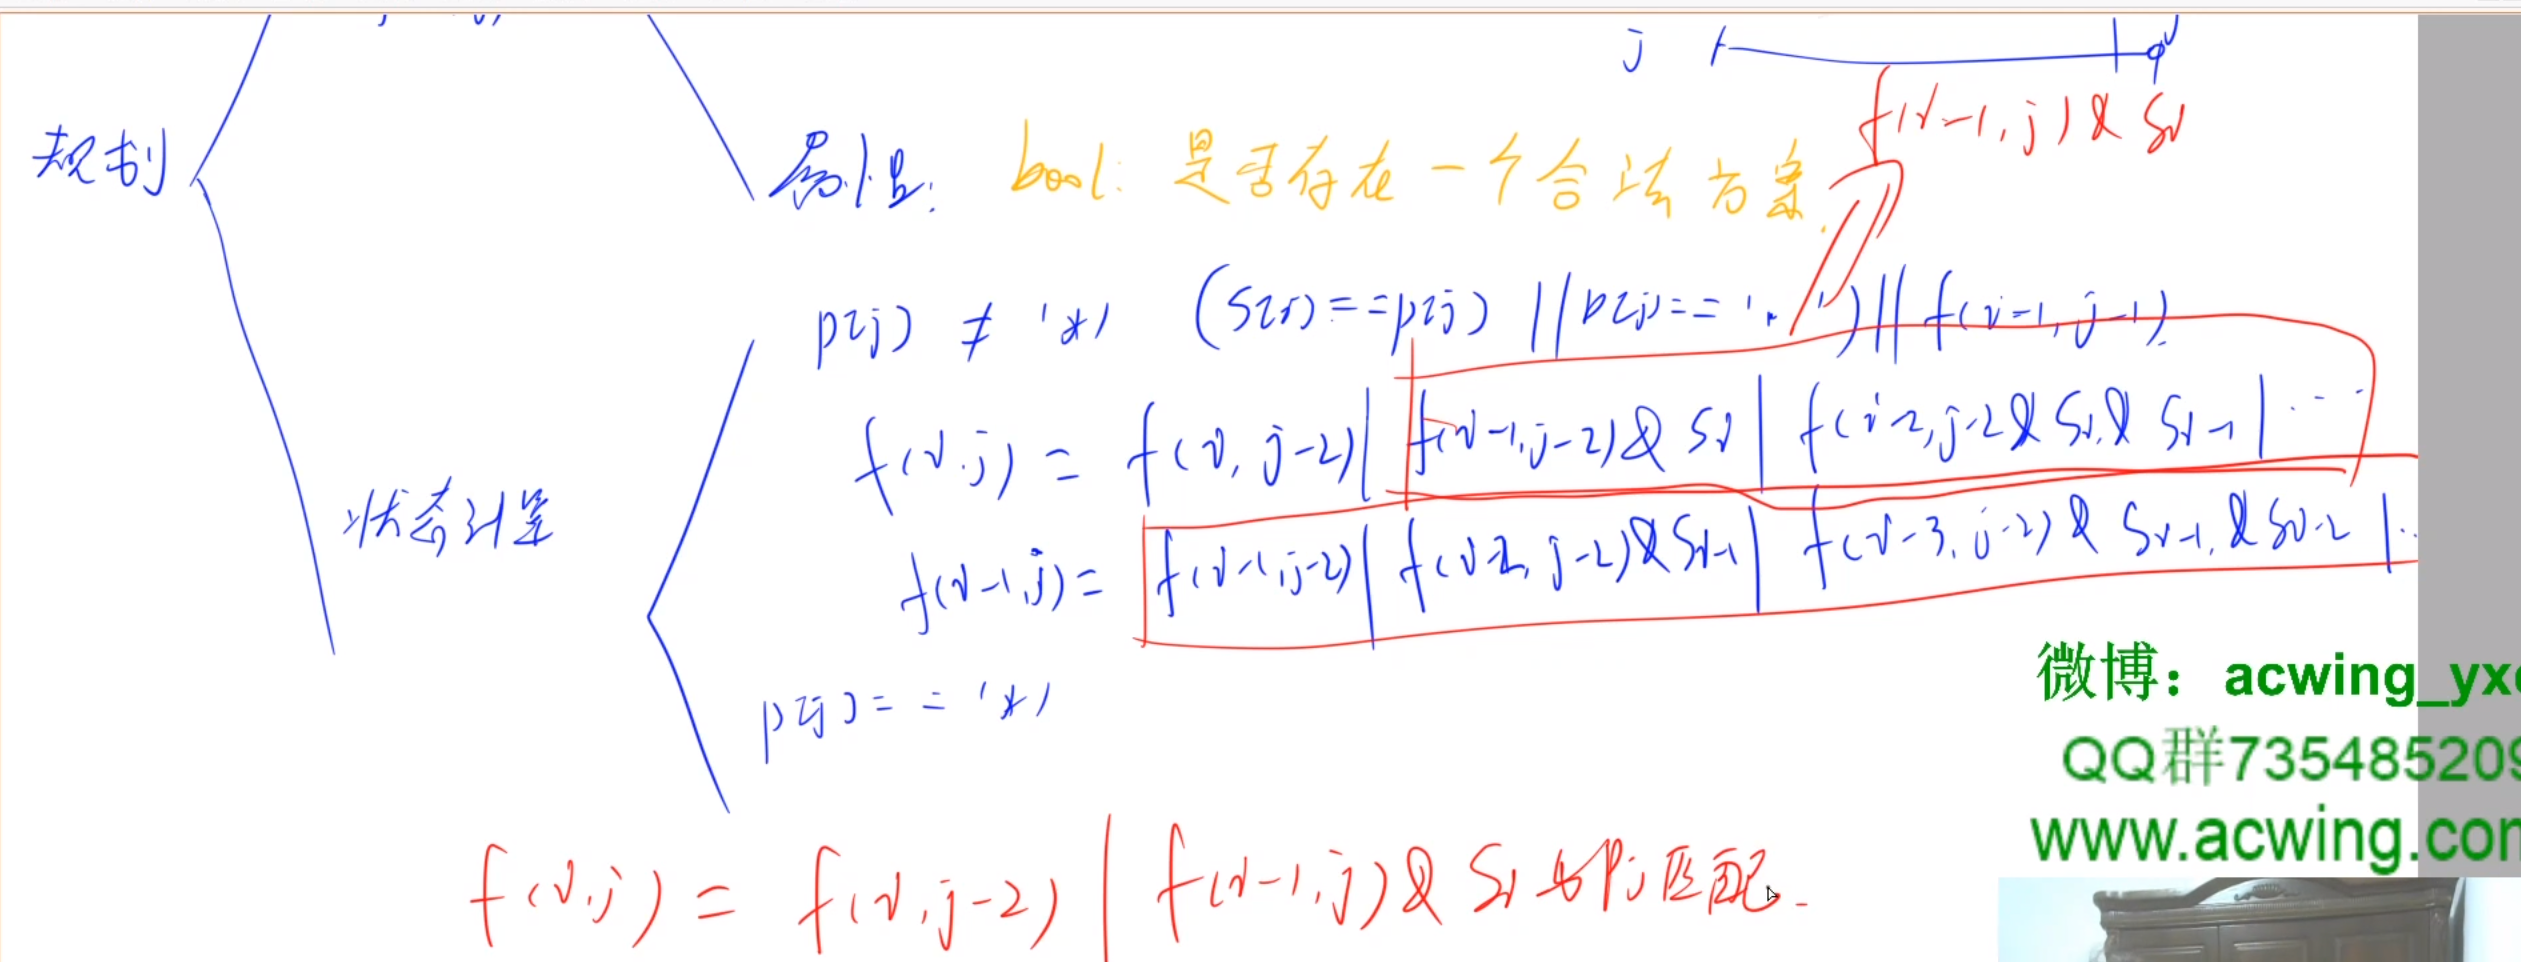 j
f(i-1, j) & Si
规划
属性: bool: 是否存在一个合法方案.
p[j] ≠ '*' (s[i] == p[j] || p[j] == '.') || f(i-1, j-1)
f(i,j) = f(i, j-2) | f(i-1, j-2) & Si | f(i-2, j-2 & Si & Si-1 | ...
状态计算
f(i-1, j) = f(i-1, j-2) | f(i-2, j-2) & Si-1 | f(i-3, j-2) & Si-1 & Si-2 | ...
p[j] == '*'
f(i,j) = f(i, j-2) | f(i-1, j) & Si 与 Pj 匹配.
微博：acwing_yx
QQ群73548520
www.acwing.co